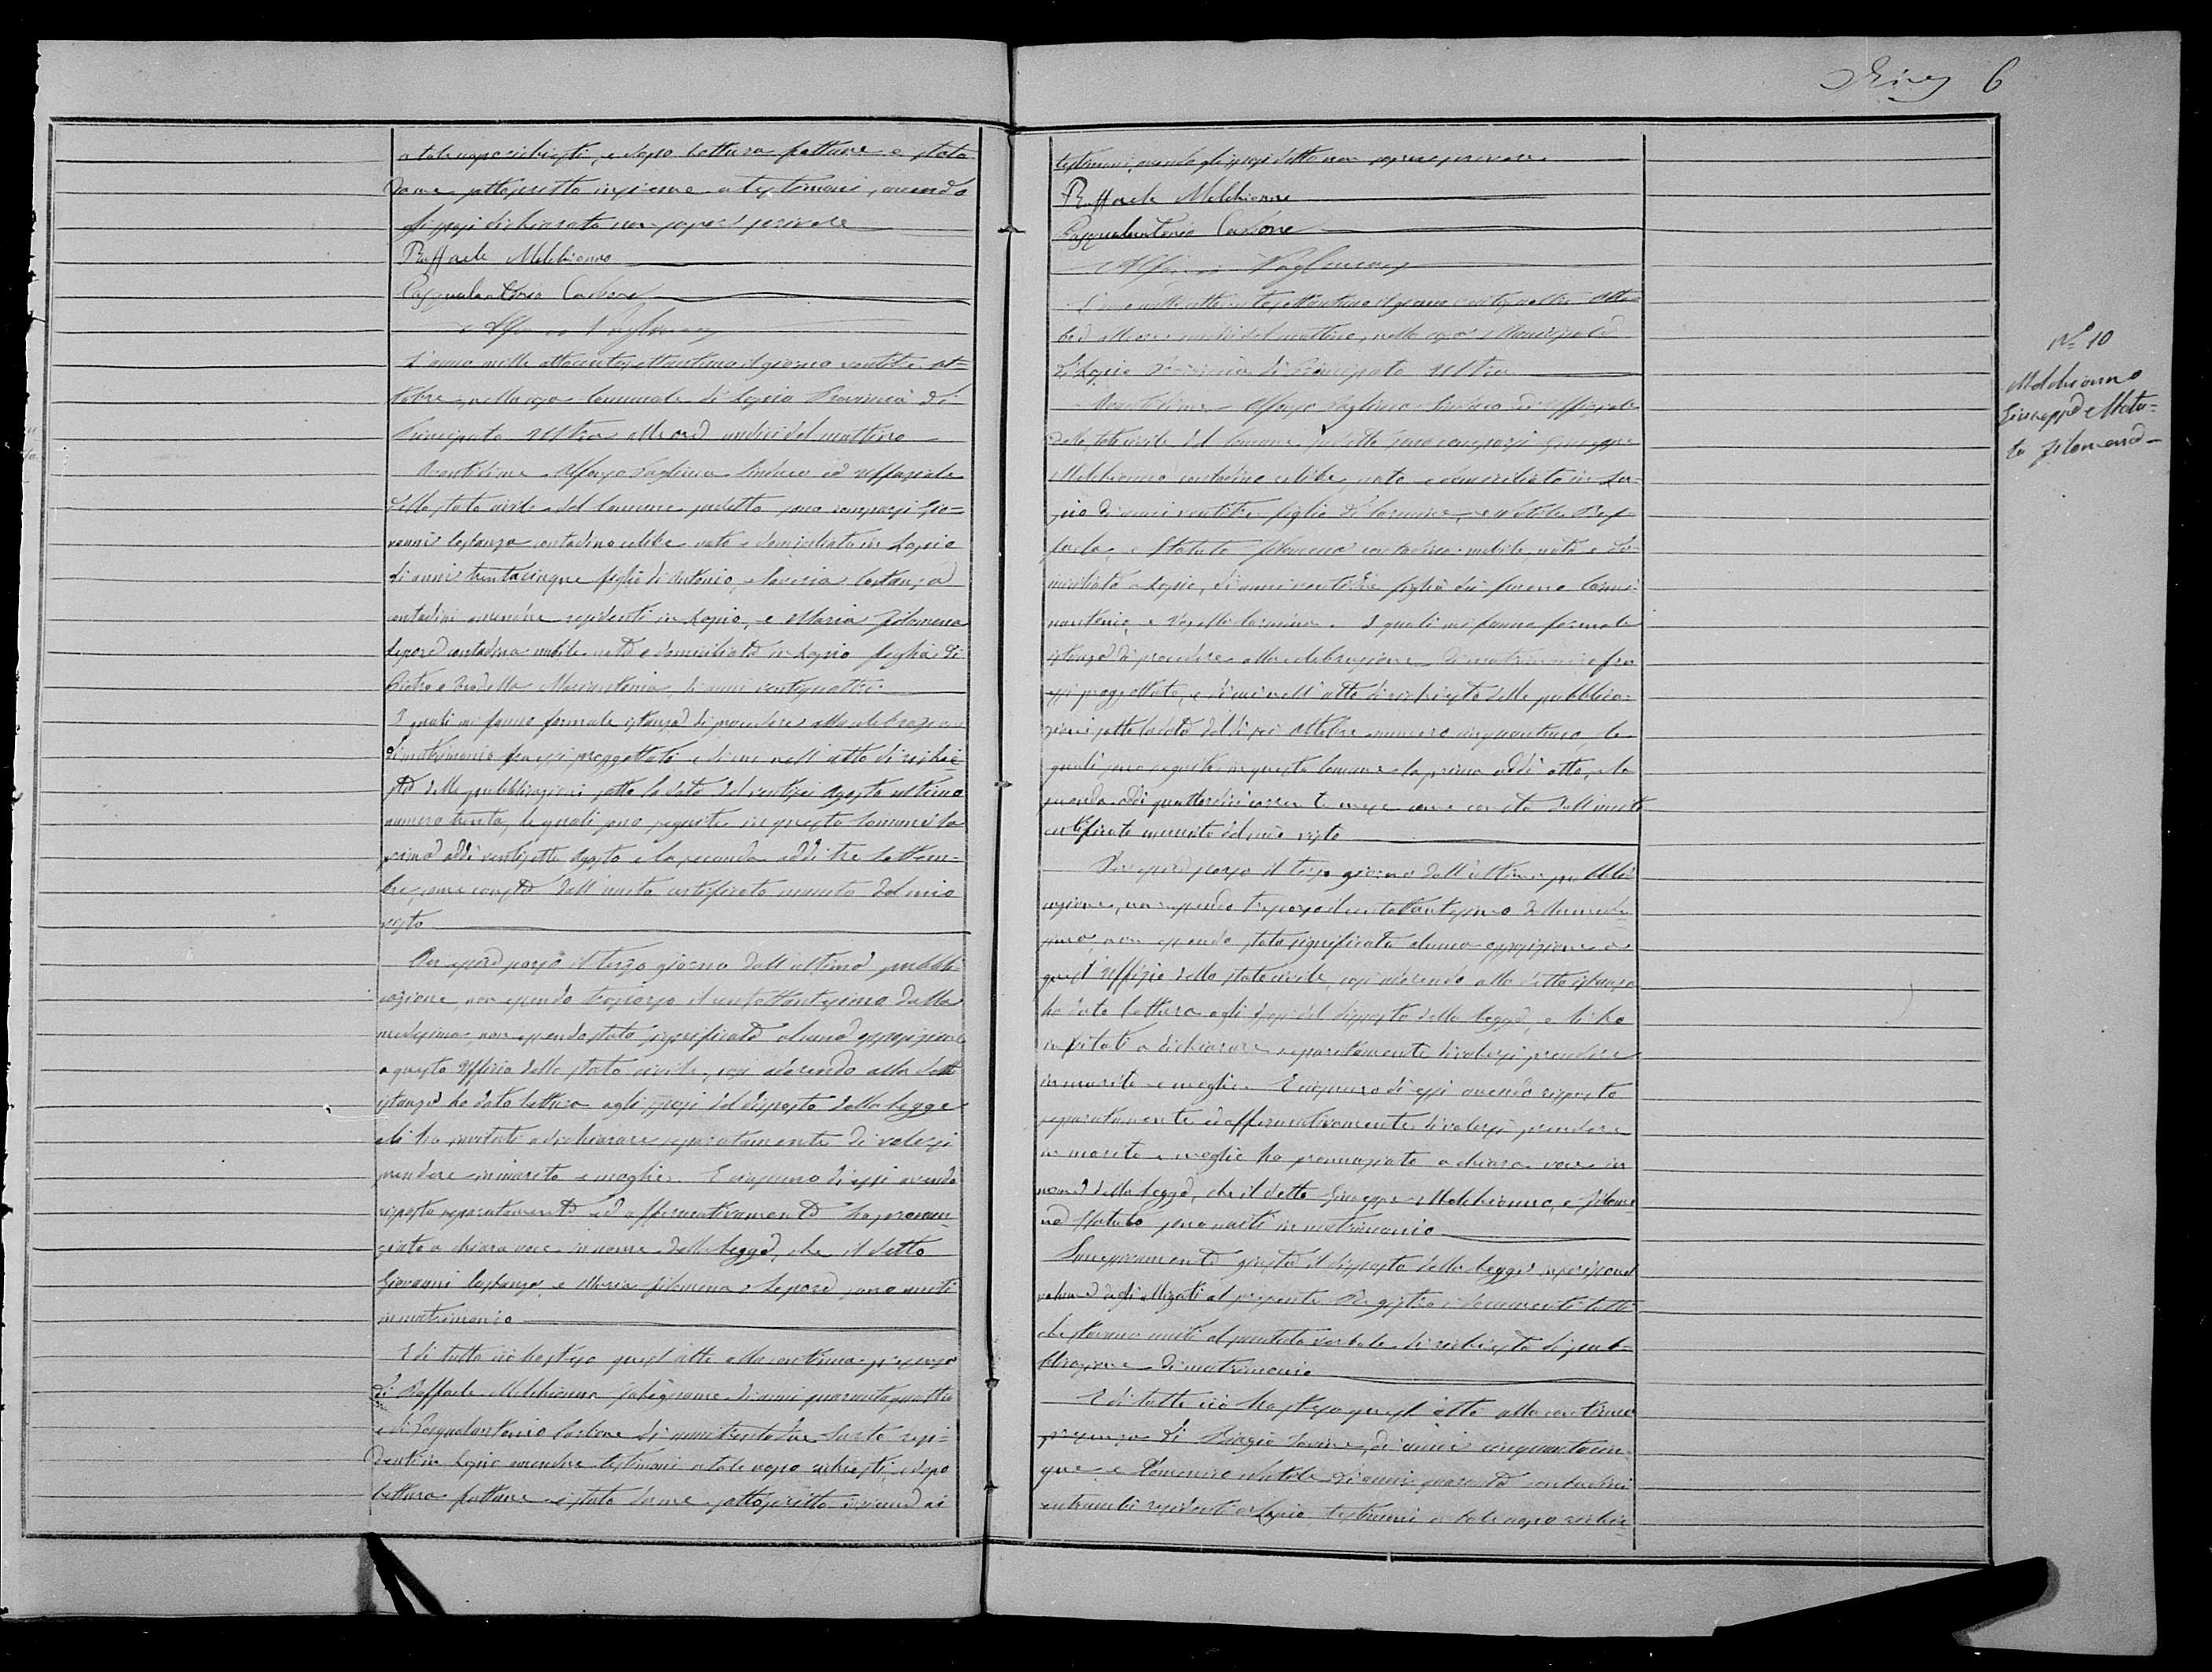 a tale uopo richiesti, e dopo lettura fattane è stato
da me sottoscritto insieme a testimoni, avendo
gli sposi dichiarato non sapere scrivere
Raffaele Melchionno
Pasqualantonio Carbone
Alfonso
L'anno mille ottocentosettantuno il giorno ventitre ot=
tobre, nella casa Comunale di Lapio Provincia di
Principato Ultra alle ore undici del mattino
Avanti di me Alfonso Sindaco ed Uffiziale
dello stato civile del Comune suddetto sono comparsi Gio=
vanni Costanza contadino celibe nato e domiciliato in Lapio
di anni trentacinque figlio di Antonio, e Costanza
contadini amendue residenti in Lapio, e Maria Filomena
Lepore contadina nubile nata e domiciliata in Lapio figlia di
Pietro e Mariantonia, di anni ventiquattro
I quali mi fanno formale istanza di procedere alla celebrazione
di matrimonio fra essi progettato e di cui nell'atto di richie=
sta delle pubblicazioni sotto la data del ventisei Agosto ultimo
numero trenta, le quali sono seguite in questo Comune la
prima addì ventisette Agosto e la seconda addì tre Settem=
bre, come consta dall'unito certificato munito del mio
visto
Per essere scorso il terzo giorno dall'ultima pubbli=
cazione, non essendo trascorso il centottantesimo dalla
medesima, non essendo stata significata alcuna opposizione
a questo Uffizio dello stato civile, così aderendo alla detta
istanza ho dato lettura agli sposi del disposto della legge
e li ho invitati a dichiarare separatamente di volersi
prendere in marito e moglie. E ciascuno di essi avendo
risposto separatamente ed affermativamente ho pronun=
ziato a chiara voce in nome della legge, che il detto
Giovanni Costanza, e Maria Filomena Lepore sono uniti
in matrimonio
E di tutto ciò ho steso quest'atto alla continua presenza
di Raffaele Melchionno falegname di anni quarantaquattro
e di Pasqualantonio Carbone di anni trentadue Sarto resi=
denti in Lapio amendue testimoni a tale uopo richiesti, e dopo
lettura fattane è stato da me sottoscritto insieme ai
6
testimoni, avendo gli sposi detto non sapere scrivere
Raffaele Melchionno
Pasqualantonio Carbone
Alfonso
L'anno mille ottocentosettantuno il giorno ventiquattro Otto=
bre alle ore undici del mattino, nella casa Municipale
di Lapio Provincia di Principato Ultra
Avanti di me Alfonso Sindaco ed Uffiziale
dello stato civile del Comune suddetto sono comparsi Giuseppe
Melchionno contadino celibe, nato e domiciliato in La=
pio di anni ventitre figlio di Carmine, e Natale Raf=
faela, e Statuto Filomena contadina nubile, nata e do=
miciliata a Lapio, di anni figlia del
e Carmina. I quali mi fanno formale
istanza di procedere alla celebrazione di matrimonio fra
essi progettato, e di cui nell'atto di richiesta delle pubblica=
zioni sotto la data del di sei Ottobre numero cinquantuno, le
quali sono seguite in questo Comune la prima addì otto, e la
seconda addì quattordici corrente mese come consta dall'unito
certificato munito del mio visto
Per essere scorso il terzo giorno dall'ultima pubbli=
cazione, non essendo trascorso il centottantesimo dalla mede=
sima, non essendo stata significata alcuna opposizione a
quest'Uffizio dello stato civile, così aderendo alla detta istanza
ho dato lettura agli sposi del disposto della legge, e li ho
invitati a dichiarare separatamente di volersi prendere
in marito e moglie. E ciascuno di essi avendo risposto
separatamente ed affermativamente di volersi prendere
in marito e moglie ho pronunziato a chiara voce in
nome della legge, che il detto Giuseppe Melchionno, e Filome
na Statuto sono uniti in matrimonio
giusta il disposto della legge
volume degli allegati al presente Registro i documenti tutti
che stavano uniti al verbale di richiesta di pub=
blicazione di matrimonio
E di tutto ciò ho steso quest'atto alla continua
presenza di Biagio di anni cinquantacin=
que e Domenico Natale di anni quaranta contadini
entrambi residenti a Lapio, testimoni a tale uopo richie=
N.° 10
Melchionno
Giuseppe e Statu=
to Filomena